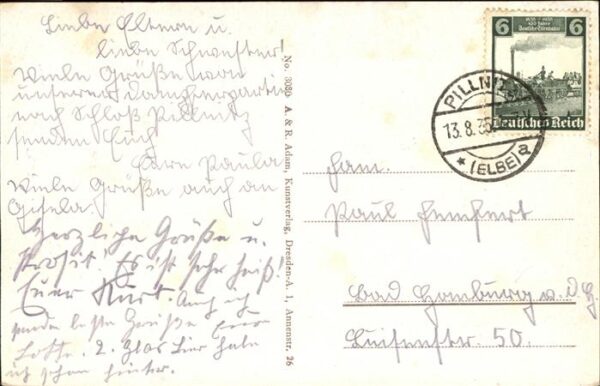 Liebe Eltern u.
liebe Schwester!
Viele Grüße von
unserer Dampferpartie
nach Schloß Pillnitz
senden Euch
Eure Paula
Viele Grüße auch an
Gisela.
Herzliche Grüße u.
Prosit! Es ist sehr heiß!
Euer Kurt. Auch ich
sende beste Grüße Eure
Lotte. 2. Glas Bier habe
ich schon hinter.
No. 3080 A. & R. Adam, Kunstverlag, Dresden-A. 1, Annenstr. 26
6 6
1835 - 1935
100 Jahre
Deutsche Eisenbahn
Deutsches Reich
PILLNITZ
13.8.35
* (ELBE) a
Fam.
Paul
Bad Homburg v. d. H.
Luisenstr. 50.